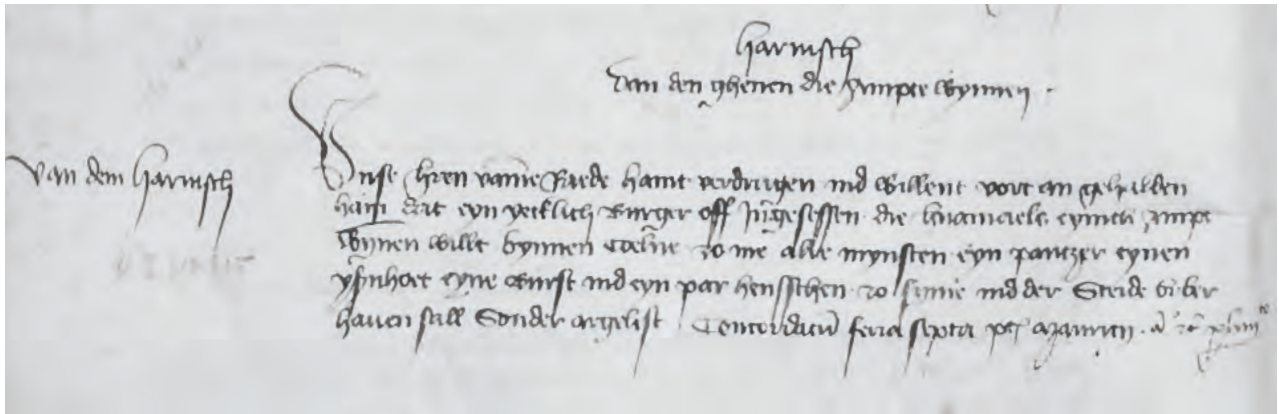 Harnisch
van den ghenen die ampte wynnen .
Van dem Harnisch
Unse hren vame Raede haint verdragen ind willent vort an gehalden
hain dat eyn yecklich Burger off Ingesessen die hernamails eynich ampt
wynnen willt bynnen Coelne zo me alre mynsten eyn pantzer eynen
yserenhoet eyne burst ind eyn par hensschen zo syme ind der Steide urber
haven sall Sonder argelist Concordatum feria sexta post Mauricii